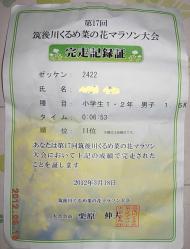 第17回
筑後川くるめ菜の花マラソン大会
完走記録証
ゼッケン 2422
氏名
種目 小学生1・2年 男子 1.5K
タイム 0:06:53
順位 11位
あなたは第17回筑後川くるめ菜の花マラソン
大会において上記の成績で完走された
ことを証します
2012年3月18日
筑後川くるめ菜の花マラソン大会
大会会長 栗原 伸夫